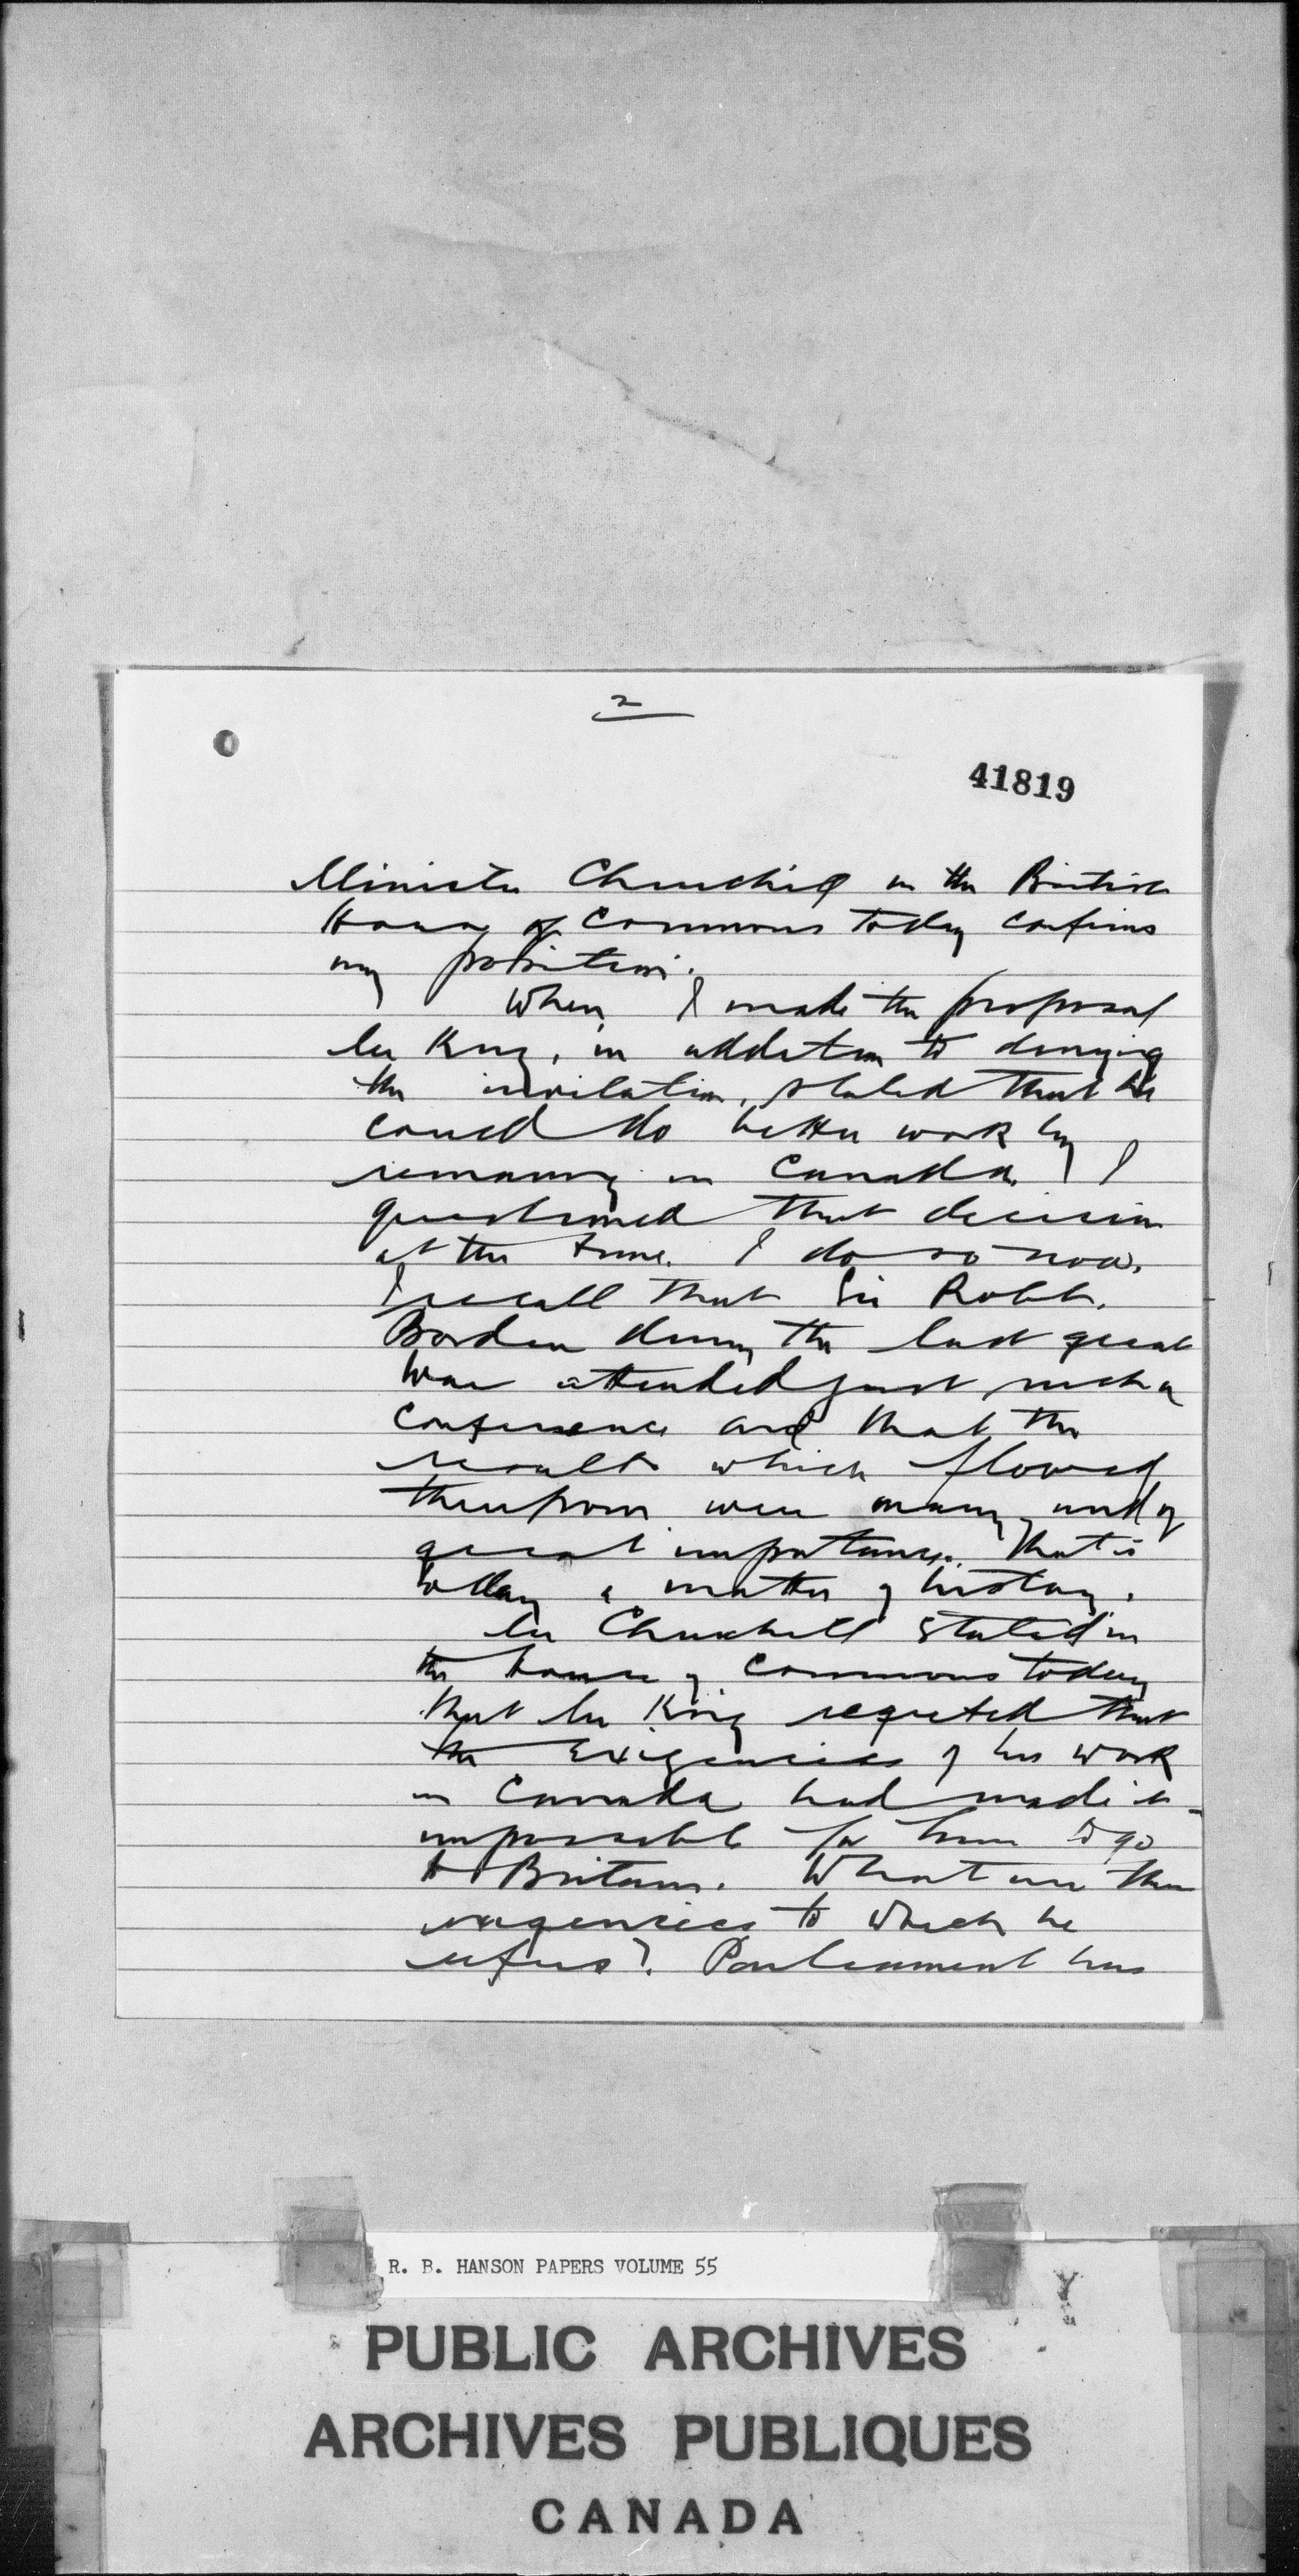 2
41819
Minister Churchill in the British
House of Commons today confirms
my position.
When I made the proposal
Mr King, in addition to denying
the invitation, stated that he
could do better work by
remaining in Canada. I
questioned that decision
at the time. I do so now.
I recall that Sir Robt.
Borden during the last great
War attended just such a
conference and that the
results which flowed
therefrom were many and of
great importance. That is
today a matter of history.
Mr Churchill stated in
the house of Commons today
that Mr King regretted that
the exigencies of his work
in Canada had made it
impossible for him to go
to Britain. What are the
exigencies to which he
refers? Parliament has
R. B. HANSON PAPERS VOLUME 55
PUBLIC ARCHIVES
ARCHIVES PUBLIQUES
CANADA